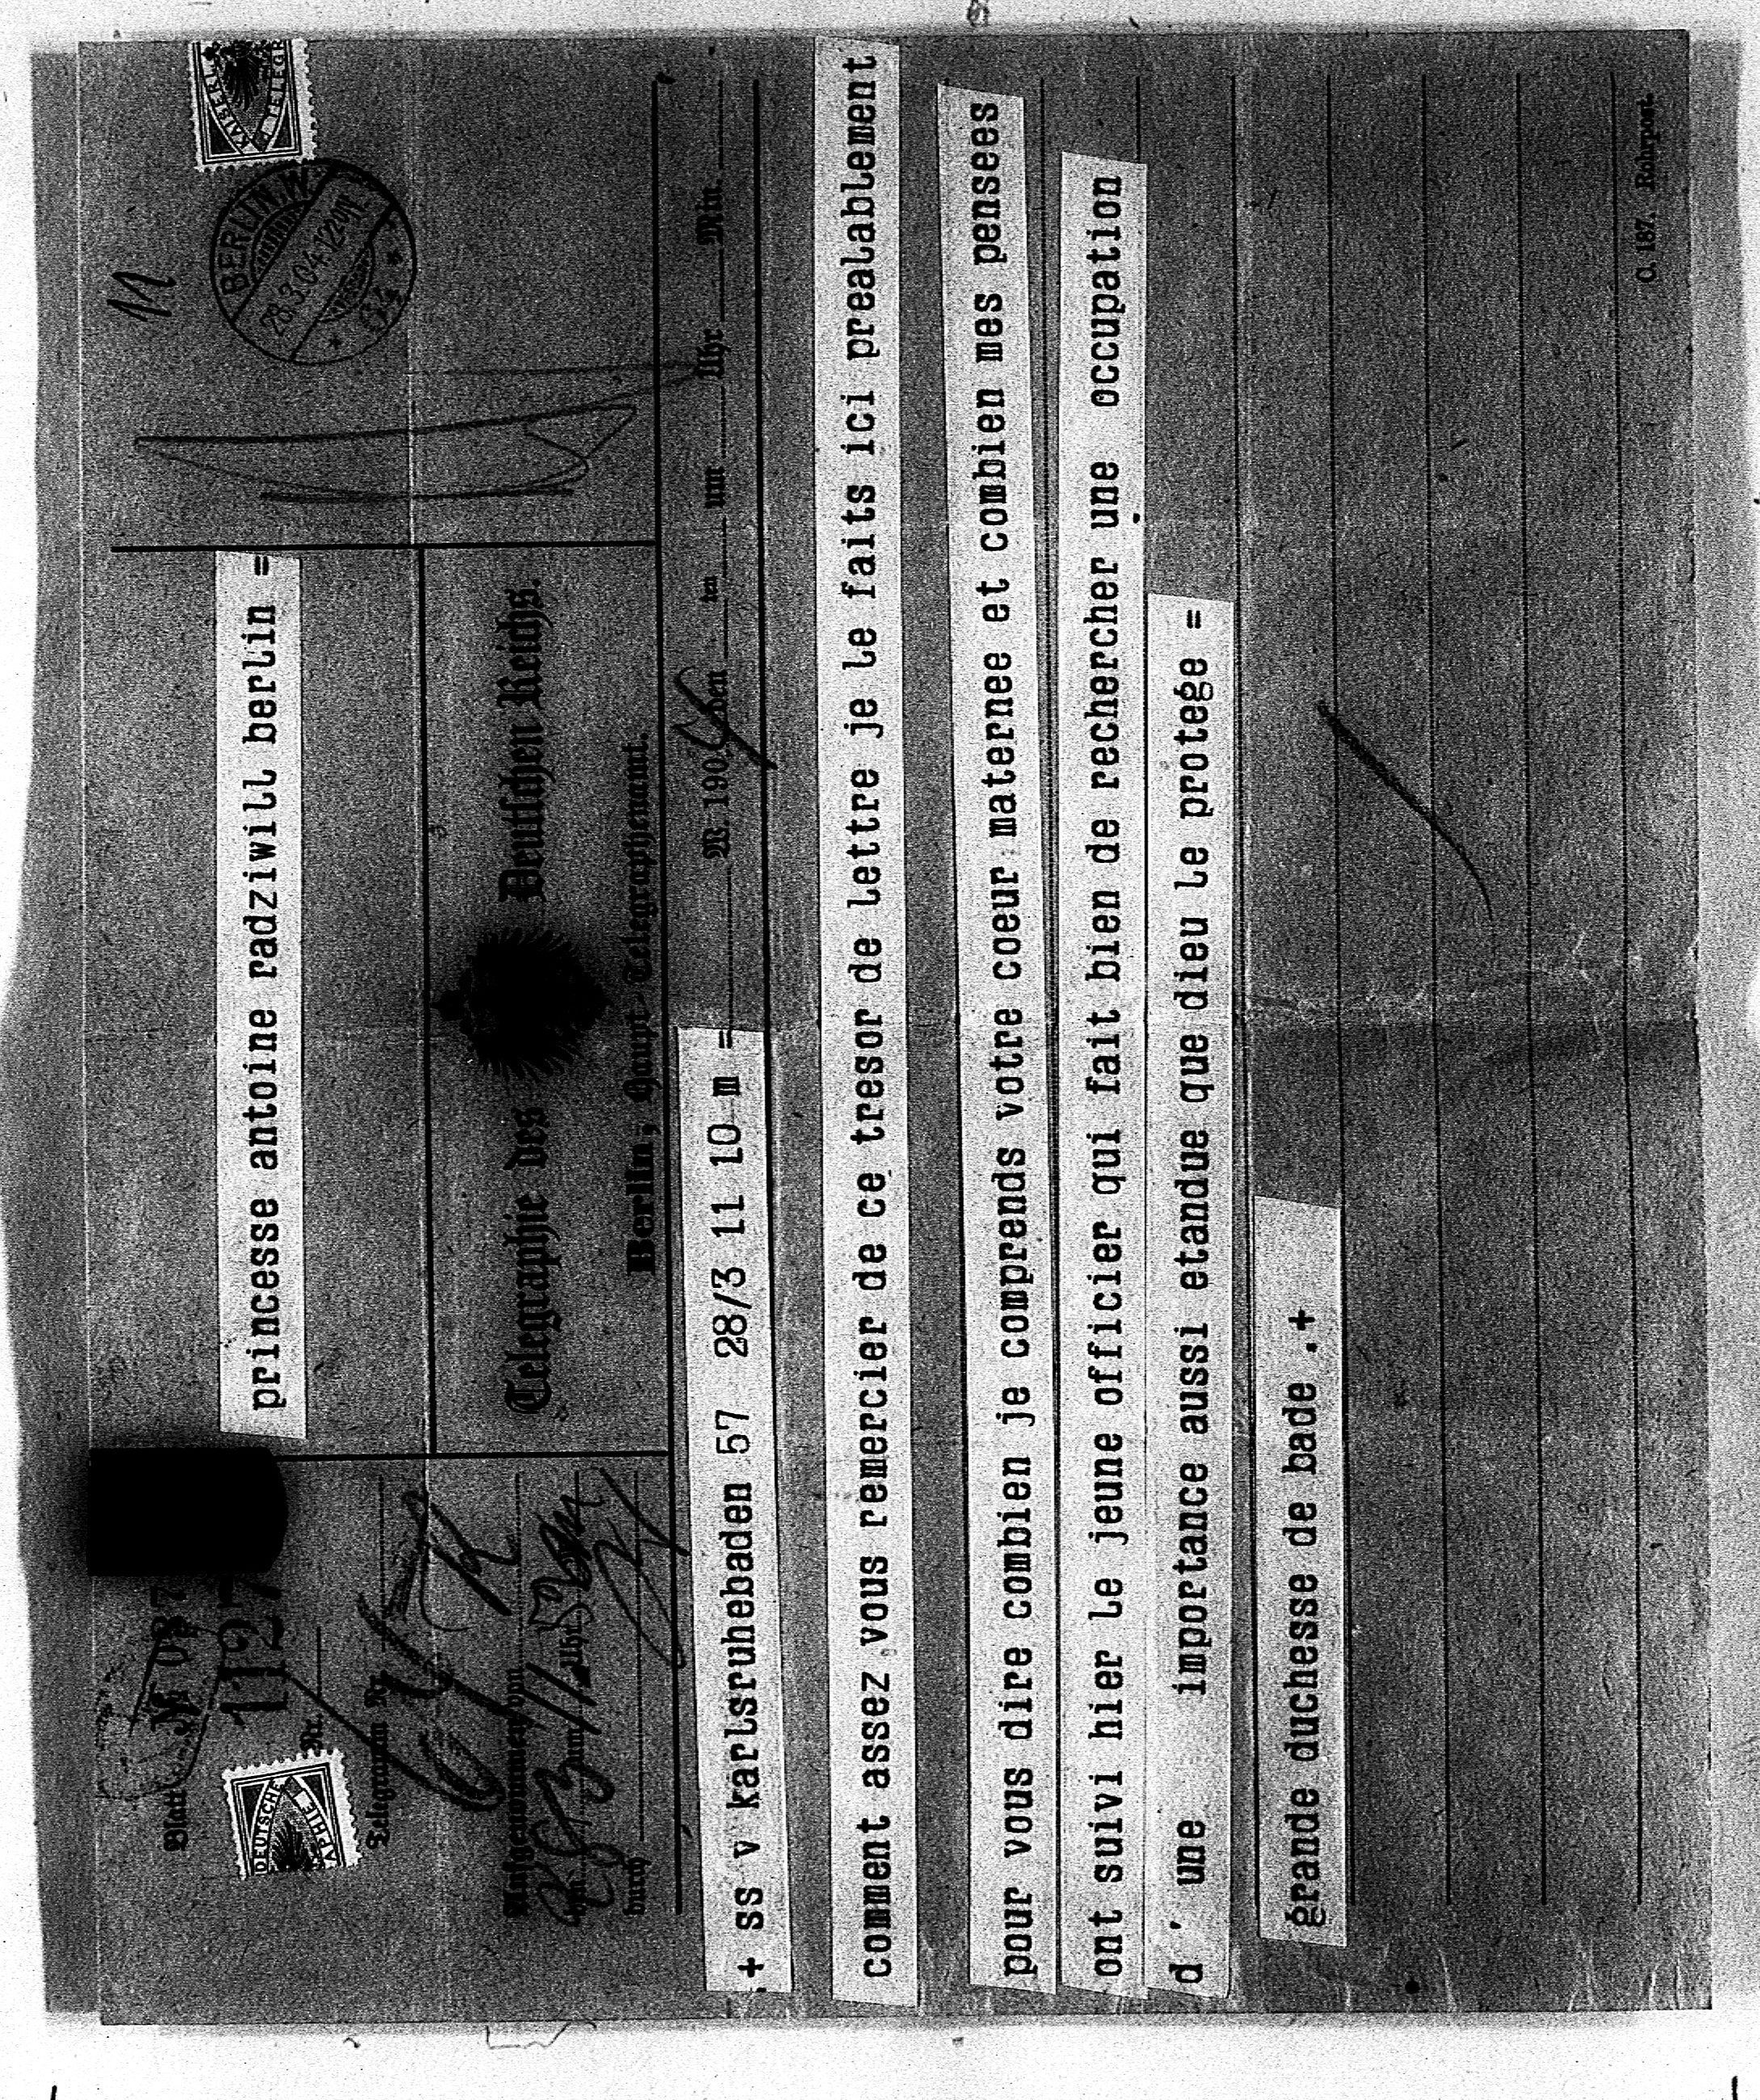 princesse antoine radziwill berlin =
KAISERL.
TELEGR
BERLIN.W
28.3.04.12
DEUTSCHE
APHIE
Blatt
Nr.
Telegramm Nr.
Telegraphie des Deutschen Reichs.
Berlin, Haupt-Telegraphenamt.
Aufgenommen von
von um 11 Uhr 50
durch
+ ss v karlsruhebaden 57 28/3 11 10 m =
M. 1904 den ten um Uhr Min.
comment assez vous remercier de ce tresor de lettre je le faits ici prealablement
pour vous dire combien je comprends votre coeur maternee et combien mes pensees
ont suivi hier le jeune officier qui fait bien de rechercher une occupation
d ' une importance aussi etandue que dieu le protege =
grande duchesse de bade .+
C. 187. Rohrpost.